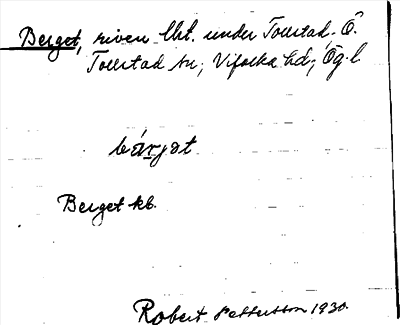 Berget, riven lht. under Tollstad. Ö.
Tollstad sn; Vifolka hd; Ög. l.
bárjət
Berget kb.
Robert Pettersson 1930.